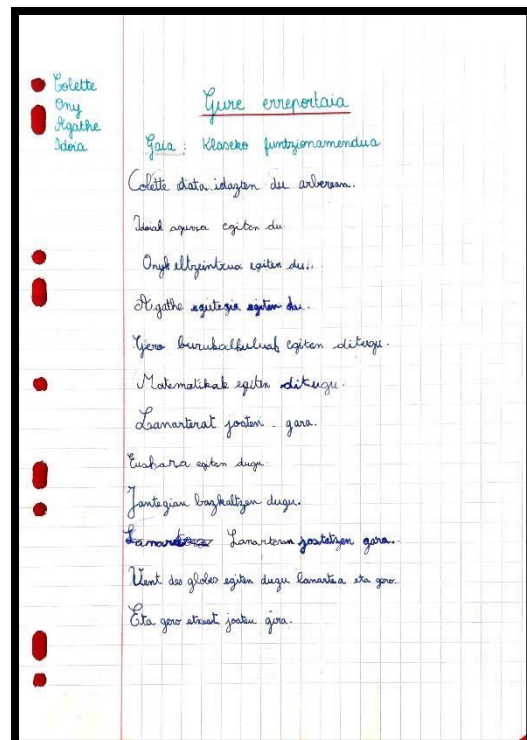 Colette
Ony
Agathe
Idoia
Gure erreportaia
Gaia : Klaseko funtzionamendua
Colette data idazten du arberean.
Idoiak agurra egiten du
Onyk eltzeintrua egiten du..
Agathe egutegia egiten du.
Gero burukalkuluak egiten ditugu.
Matematikak egiten ditugu.
Lanarterat joaten . gara.
Euskara egiten dugu.
Jantegian bazkaltzen dugu.
Lanarteran jostatzen gara.
Vent des globes egiten dugu lanartea eta gero.
Eta gero etxeat joaten gira.